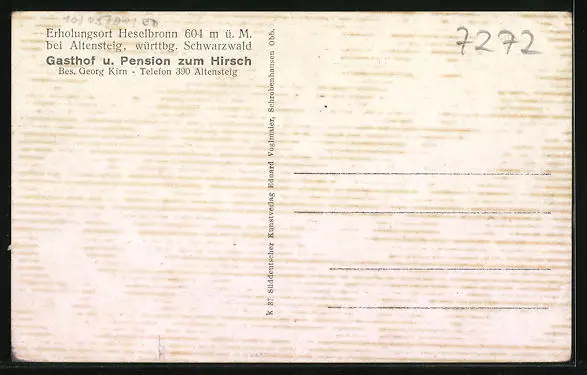 Erholungsort Heselbronn 604 m ü. M.
bei Altensteig, württbg. Schwarzwald
Gasthof u. Pension zum Hirsch
Bes. Georg Kirn - Telefon 390 Altensteig
k 37 Süddeutscher Kunstverlag Eduard Voglmaier, Schrobenhausen Obb.
7272